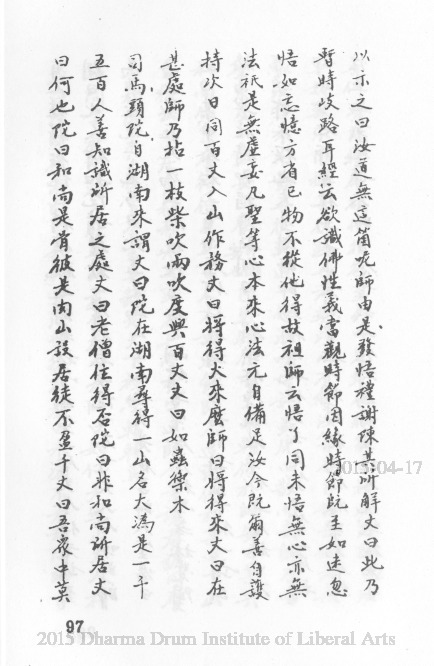 以示之曰汝道無這箇呢師由是發悟禮謝陳其所解丈曰此乃
暫時岐路耳經云欲識佛性義當觀時節因緣時節既至如迷忽
悟如忘憶方省己物不從他得故祖師云悟了同未悟無心亦無
法祇是無虛妄凡聖等心本來心法元自備足汝今既爾善自護
持次日同百丈入山作務丈曰將得火來麼師曰將得來丈曰在
甚處師乃拈一枝柴吹兩吹度與百丈丈曰如蟲禦木
司馬頭陀自湖南來謂丈曰陀在湖南尋得一山名大溈是一千
五百人善知識所居之處丈曰老僧住得否陀曰非和尚所居丈
曰何也陀曰和尚是骨彼是肉山設居徒不盈千丈曰吾衆中莫
97
2015-04-17
2015 Dharma Drum Institute of Liberal Arts